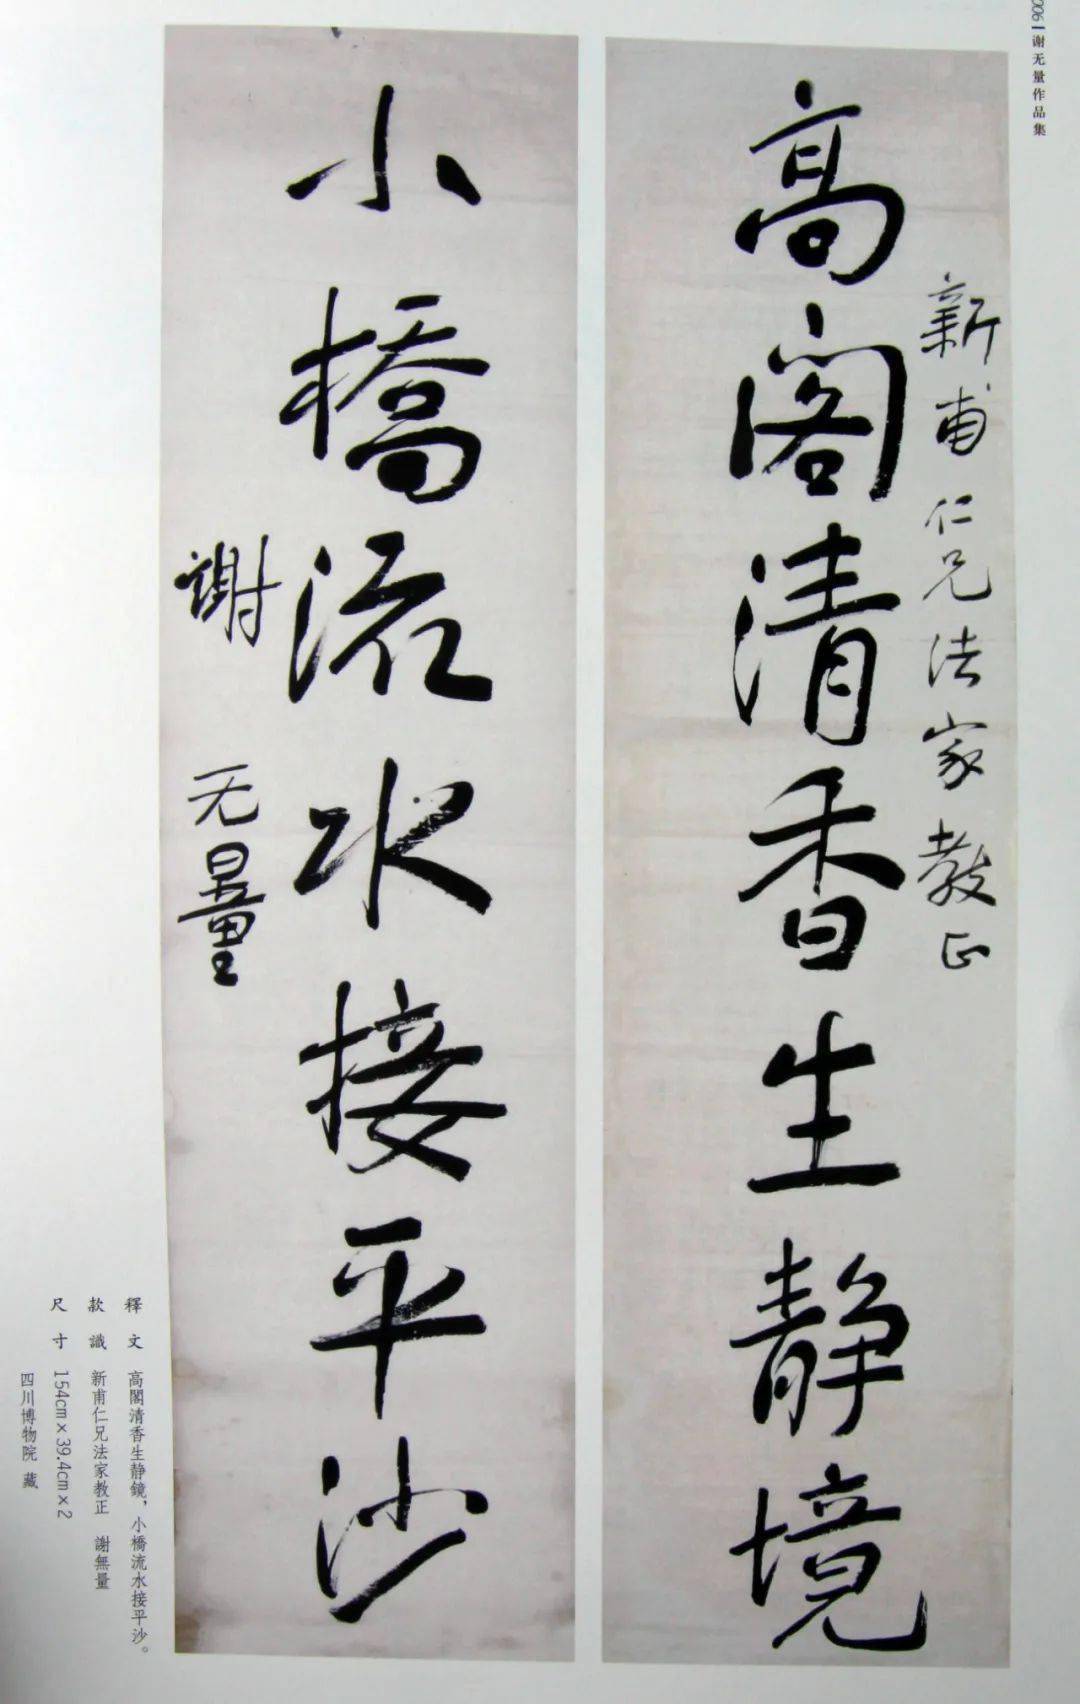 006 谢无量作品集
新甫仁兄法家教正
高閣清香生静境
小橋流水接平沙
謝无量
釋文 高閣清香生静鏡，小橋流水接平沙。
款識 新甫仁兄法家教正 謝無量
尺寸 154cm×39.4cm×2
四川博物院 藏